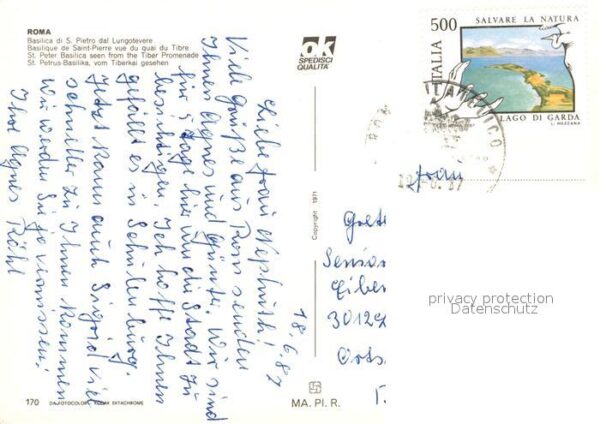 ROMA
Basilica di S. Pietro dal Lungotevere
Basilique de Saint-Pierre vue du quai du Tibre
St. Peter Basilica seen from the Tiber Promenade
St. Petrus-Basilika, vom Tiberkai gesehen
ok
SPEDISCI
QUALITA'
500
SALVARE LA NATURA
ITALIA
LAGO DI GARDA
L. MEZZANA
FILATELICO
Frau
18.6.87
Liebe Frau
Viele Grüße aus Rom senden
Ihnen Agnes und Günter. Wir sind
für 5 Tage hier um die Stadt zu
besichtigen. Ich hoffe Ihnen
gefällt es in Schulenburg.
Jetzt kann auch Sigrid viel
schneller zu Ihnen kommen
wir werden Sie ja vermissen!
Ihre Agnes
Copyright 1971
Senior
30129
Orts
privacy protection
Datenschutz
170
DA FOTOCOLOR KODAK EKTACHROME
MA. PI. R.